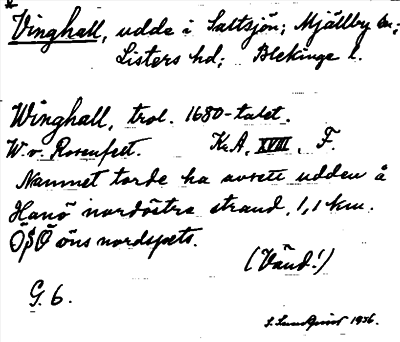 Vinghall, udde i Saltsjön; Mjällby sn;
Listers hd; Blekinge l.
Winghall, trol. 1680-talet.
W. v. Rosenfelt. Kr.A, XVIII, F.
Namnet torde ha avsett udden å
Hanö nordöstra strand, 1,1 km.
ÖSÖ öns nordspets.
(Vänd!)
G. 6.
S. Sundqvist 1936.